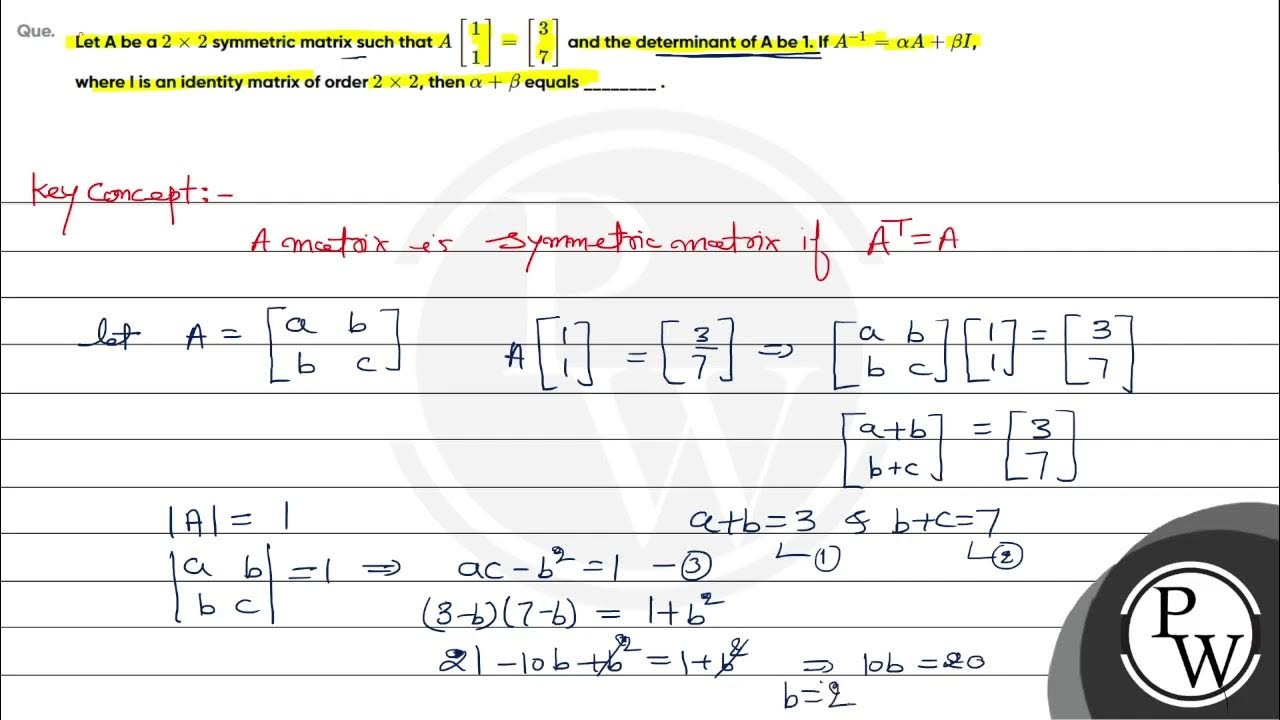 Que. Let A be a 2 × 2 symmetric matrix such that A [1 1] = [3 7] and the determinant of A be 1. If A⁻¹ = αA + βI,
where I is an identity matrix of order 2 × 2, then α + β equals ________ .
Key Concept:-
A matrix is symmetric matrix if Aᵀ = A
let A = [a b; b c] A [1; 1] = [3; 7] ⇒ [a b; b c] [1; 1] = [3; 7]
[a+b; b+c] = [3; 7]
|A| = 1 a+b=3 & b+c=7
|a b; b c| = 1 ⇒ ac - b² = 1 - ③ ① ②
(3-b)(7-b) = 1+b²
21 - 10b + b² = 1 + b² ⇒ 10b = 20
b = 2
P
W
P
W